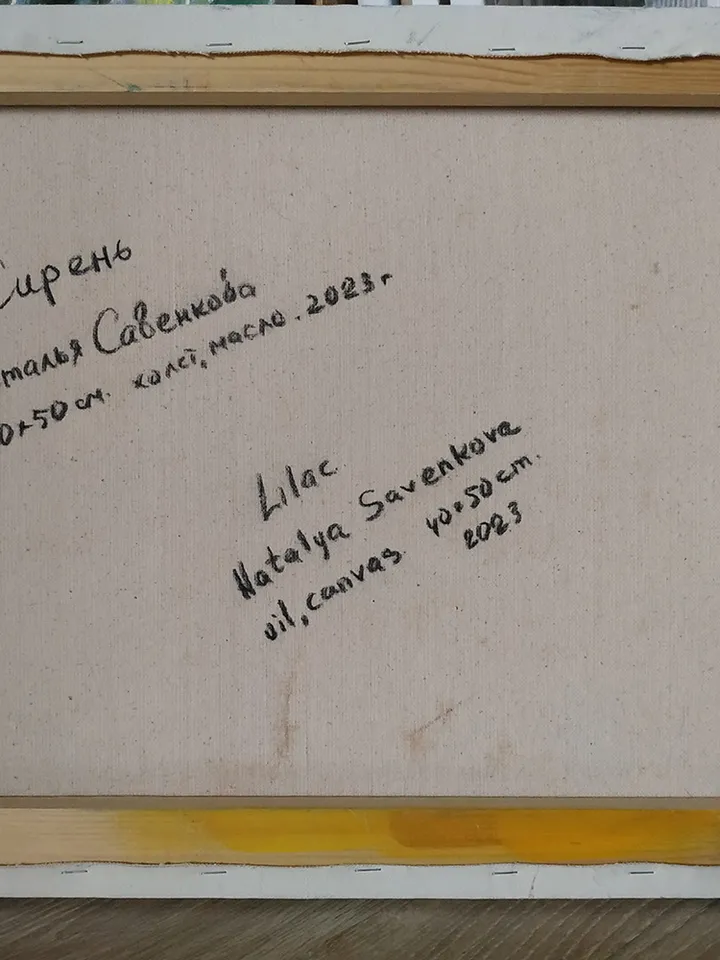 Сирень
талья Савенкова
0×50 см. холст, масло. 2023г
Lilac
Natalya Savenkova
oil, canvas 40×50 cm.
2023